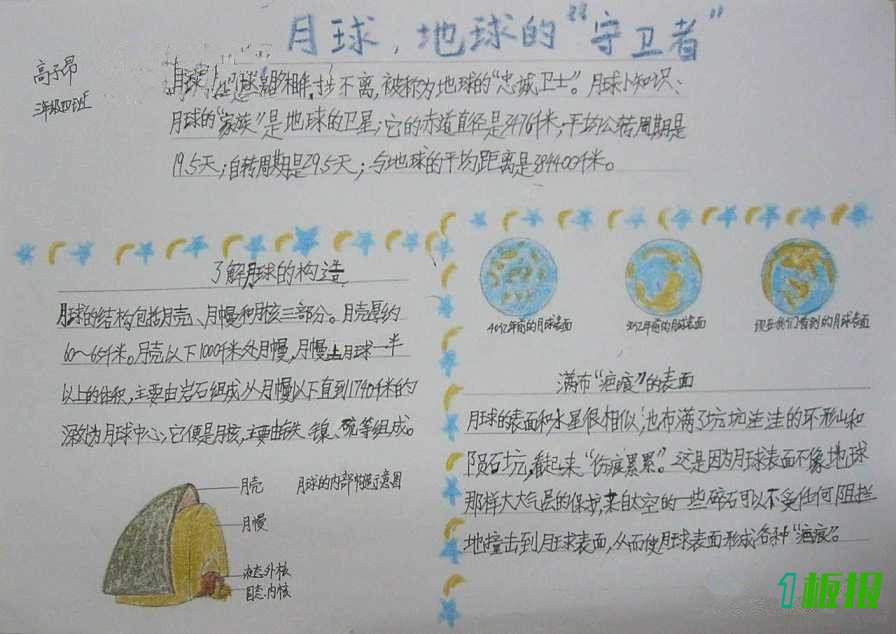 月球，地球的“守卫者”
高子昂
三年级四班
月球形影相伴，寸步不离，被称为地球的“忠诚卫士”。月球小知识：
月球的“家族”是地球的卫星；它的赤道直径是3476千米；平均公转周期是
19.5天；自转周期是29.5天；与地球的平均距离是384400千米。
了解月球的构造
月球的结构包括月壳、月幔和月核三部分。月壳厚约
60～65千米。月壳以下1000千米处月幔，月幔占月球一半
以上的体积，主要由岩石组成从月幔以下直到1740千米的
深处为月球中心，它便是月核，主要由铁、镍、硫等组成。
月壳
月球的内部构造示意图
月幔
液态外核
固态内核
40亿年前的月球表面
30亿年前的月球表面
现在我们看到的月球表面
满布“疤痕”的表面
月球的表面和水星很相似，也布满了坑坑洼洼的环形山和
陨石坑，看起来“伤痕累累”。这是因为月球表面不像地球
那样大大气层的保护，来自太空的一些碎石可以不受任何阻拦
地撞击到月球表面，从而使月球表面形成各种“疤痕”。
1板报